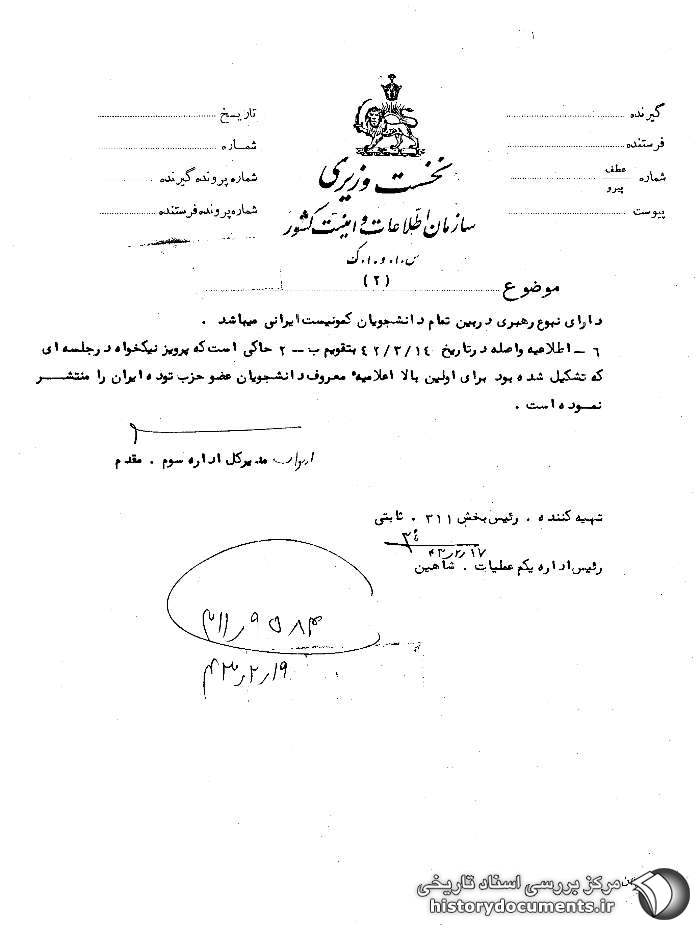 گیرنده
فرستنده
شماره عطف پیرو
پیوست
نخست وزیری
سازمان اطلاعات و امنیت کشور
س.ا.و.ا.ک
تاریخ
شماره
شماره پرونده گیرنده
شماره پرونده فرستنده
موضوع
(۲)
دارای نبوغ رهبری دربین تمام دانشجویان کمونیست ایرانی میباشد .
۶ – اطلاعیه واصله درتاریخ ۴۲/۳/۱۴ بتقویم ب – ۲ حاکی است که پرویز نیکخواه درجلسه ای
که تشکیل شده بود برای اولین بالا اعلامیه معروف دانشجویان عضو حزب توده ایران را منتشر
نموده است .
مدیرکل اداره سوم . مقدم
تهیه کننده . رئیس بخش ۳۱۱ . ثابتی
۴۳/۲/۱۷
رئیس اداره یکم عملیات . شاهین
۴۳/۲/۱۹
مرکز بررسی اسناد تاریخی
historydocuments.ir